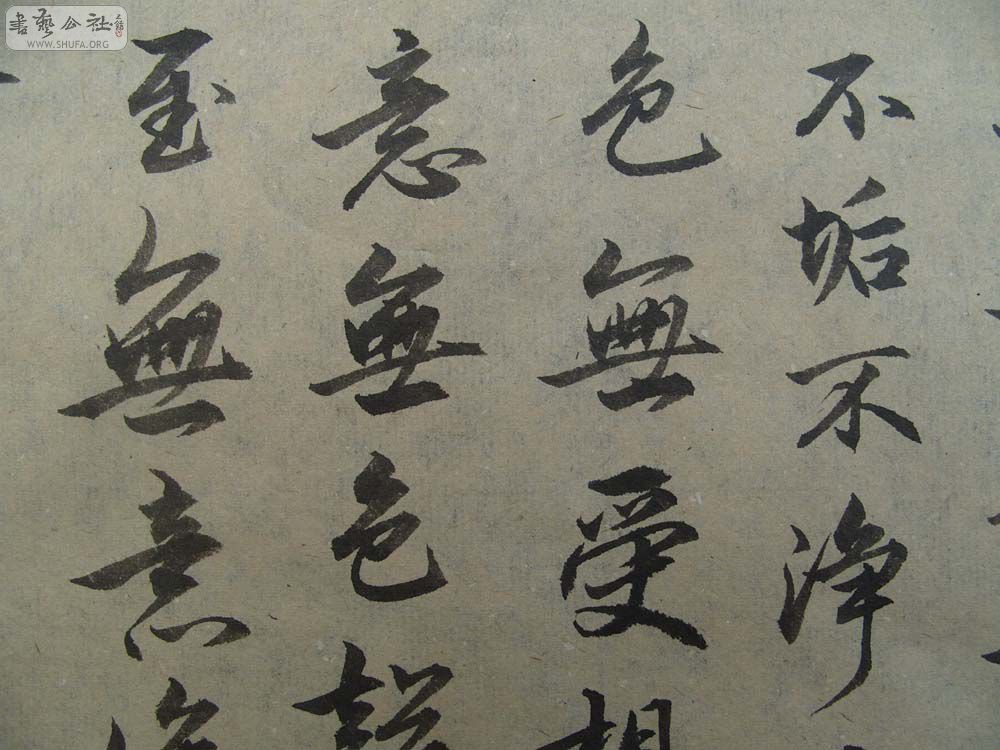 不垢不淨
色無受想
意無色聲
至無意識
書藝公社
WWW.SHUFA.ORG